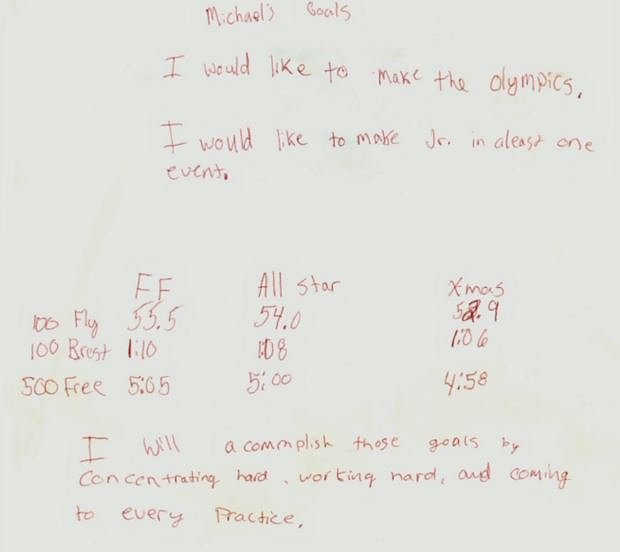 Michael's Goals
I would like to make the olympics.
I would like to make Jr. in aleast one
event.
FF All Star Xmas
100 Fly 55.5 54.0 52.9
100 Brest 1:10 1:08 1:06
500 Free 5:05 5:00 4:58
I will acommplish those goals by
Concentrating hard. working hard, and coming
to every Practice.